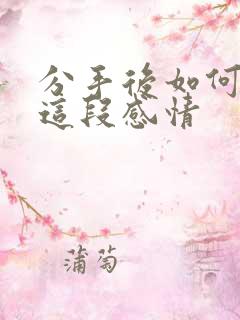 分手後如何
這段感情
蒲萄